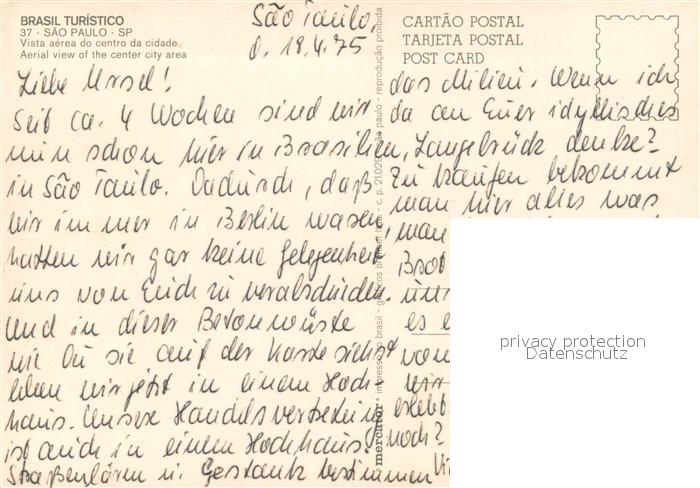 BRASIL TURÍSTICO
37 - SÃO PAULO - SP
Vista aérea do centro da cidade
Aerial view of the center city area
CARTÃO POSTAL
TARJETA POSTAL
POST CARD
São Paulo,
d. 18.4.75
Liebe Ursel!
Seit ca. 4 Wochen sind wir
nun schon hier in Brasilien,
in São Paulo. Dadurch, daß
wir immer in Berlin waren,
hatten wir gar keine Gelegenheit
uns von Euch zu verabschieden.
Und in dieser Betonwüste
wie Du sie auf der Karte siehst
leben wir jetzt in einem Hoch-
haus. Unsere Handelsvertretung
ist auch in einem Hochhaus.
Straßenlärm u. Gestank bestimmen
das Milieu. Wenn ich
da an Euer idyllisches
Langebrück denke?
Zu kaufen bekommt
man hier alles was
man
Brot
es
von
wir
erlebt
noch?
mercator
impresso no brasil
são paulo - reprodução proibida
privacy protection
Datenschutz